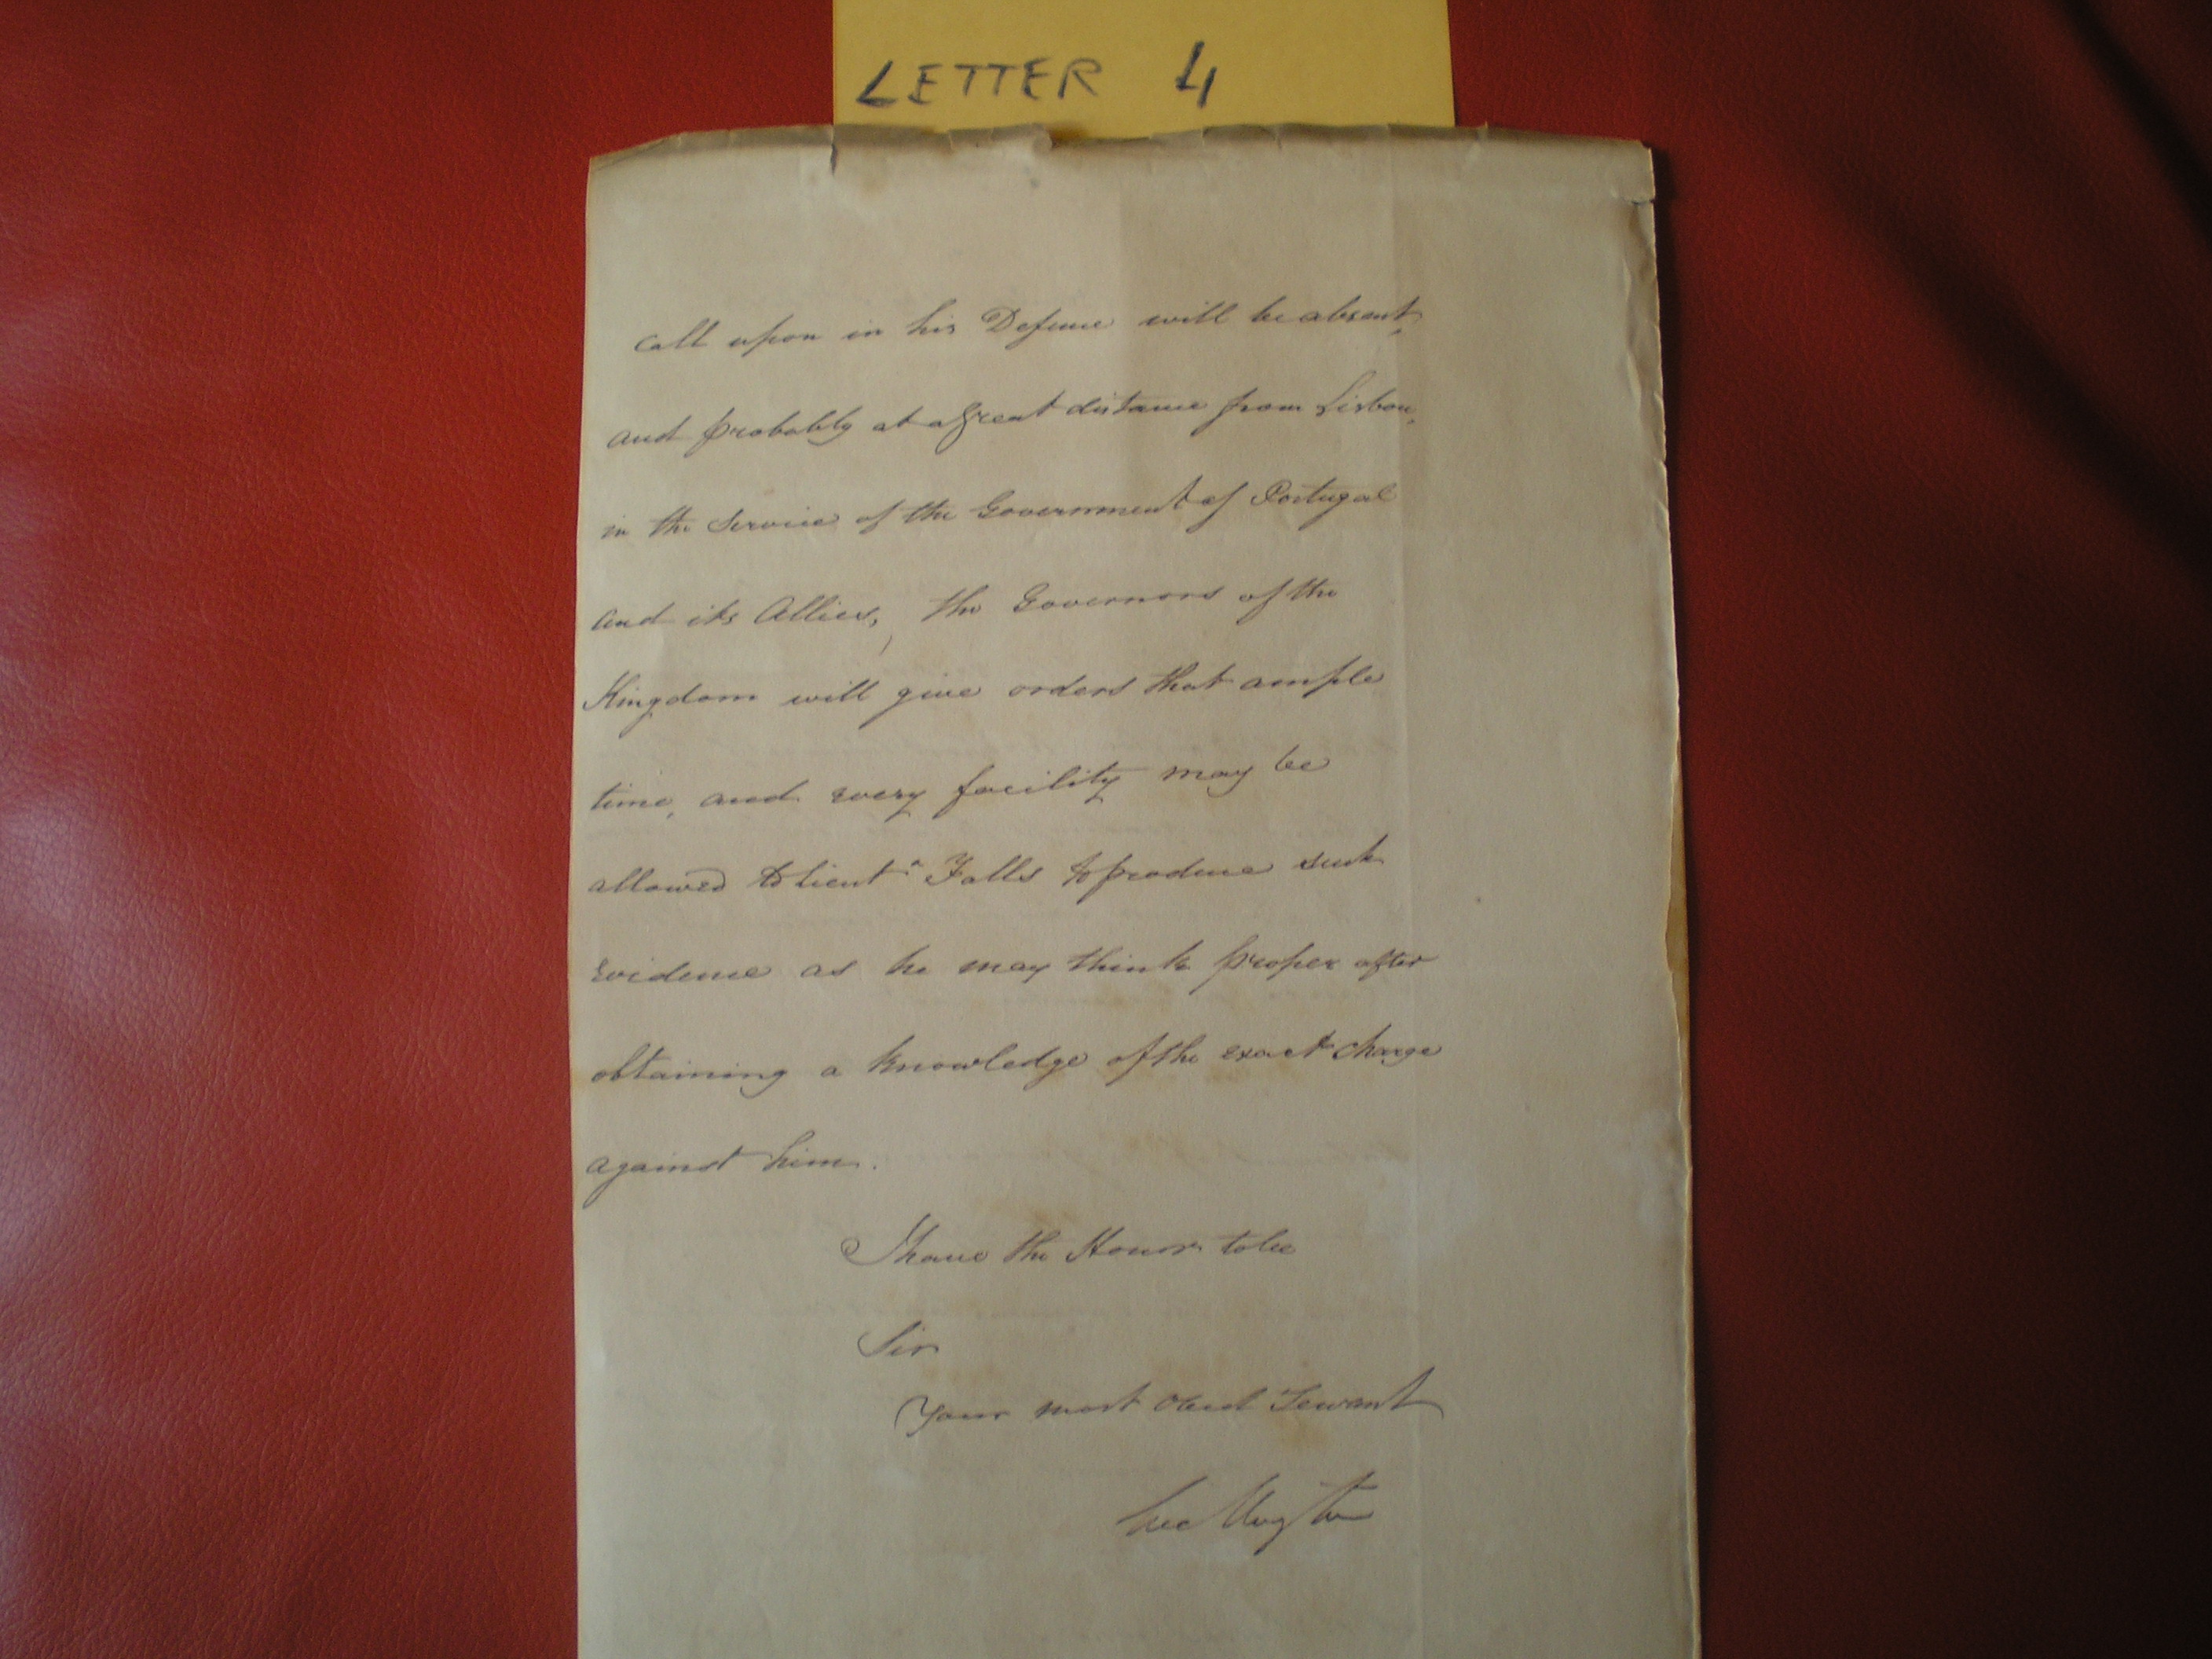 LETTER 4
Call upon in his Defence will be absent,
and probably at a great distance from Lisbon,
in the Service of the Government of Portugal
and its Allies, the Governors of the
Kingdom will give orders that ample
time, and every facility may be
allowed to Lieut. Falls to produce such
evidence as he may think proper after
obtaining a knowledge of the exact charge
against him.
I have the Honor to be
Sir
Your most Obed Servant
Wellington